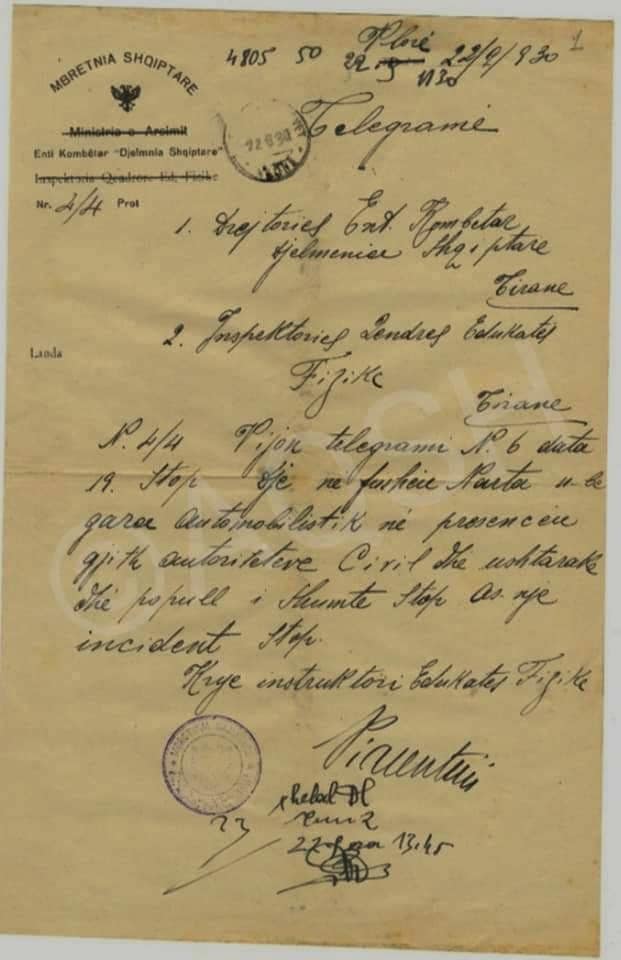 1
4805 50 Vlonë 22/9/930
22 9 1130
MBRETNIA SHQIPTARE
Ministria e Arsimit
Enti Kombëtar "Djelmnia Shqiptare"
Inspektoria Qendrore Ed. Fizike
Nr. 4/4 Prot
22 9 30
Telegramë
1. Drejtories Ent. Kombetar
Djelmenica Shqiptare
Tirane
2. Inspektories Qendres Edukates
Fizike
Tirane
Lënda
N. 4/4 Vijon telegrami N. 6 data
19. Stop Dje në fushën Narta u-be
gara automobilistik në presencën
gjith autoriteteve Civil dhe ushtarake
dhe popull i Shumte Stop As nje
incident Stop.
Krye instruktori Edukates Fizike
22 ora 13.45
©AQSH